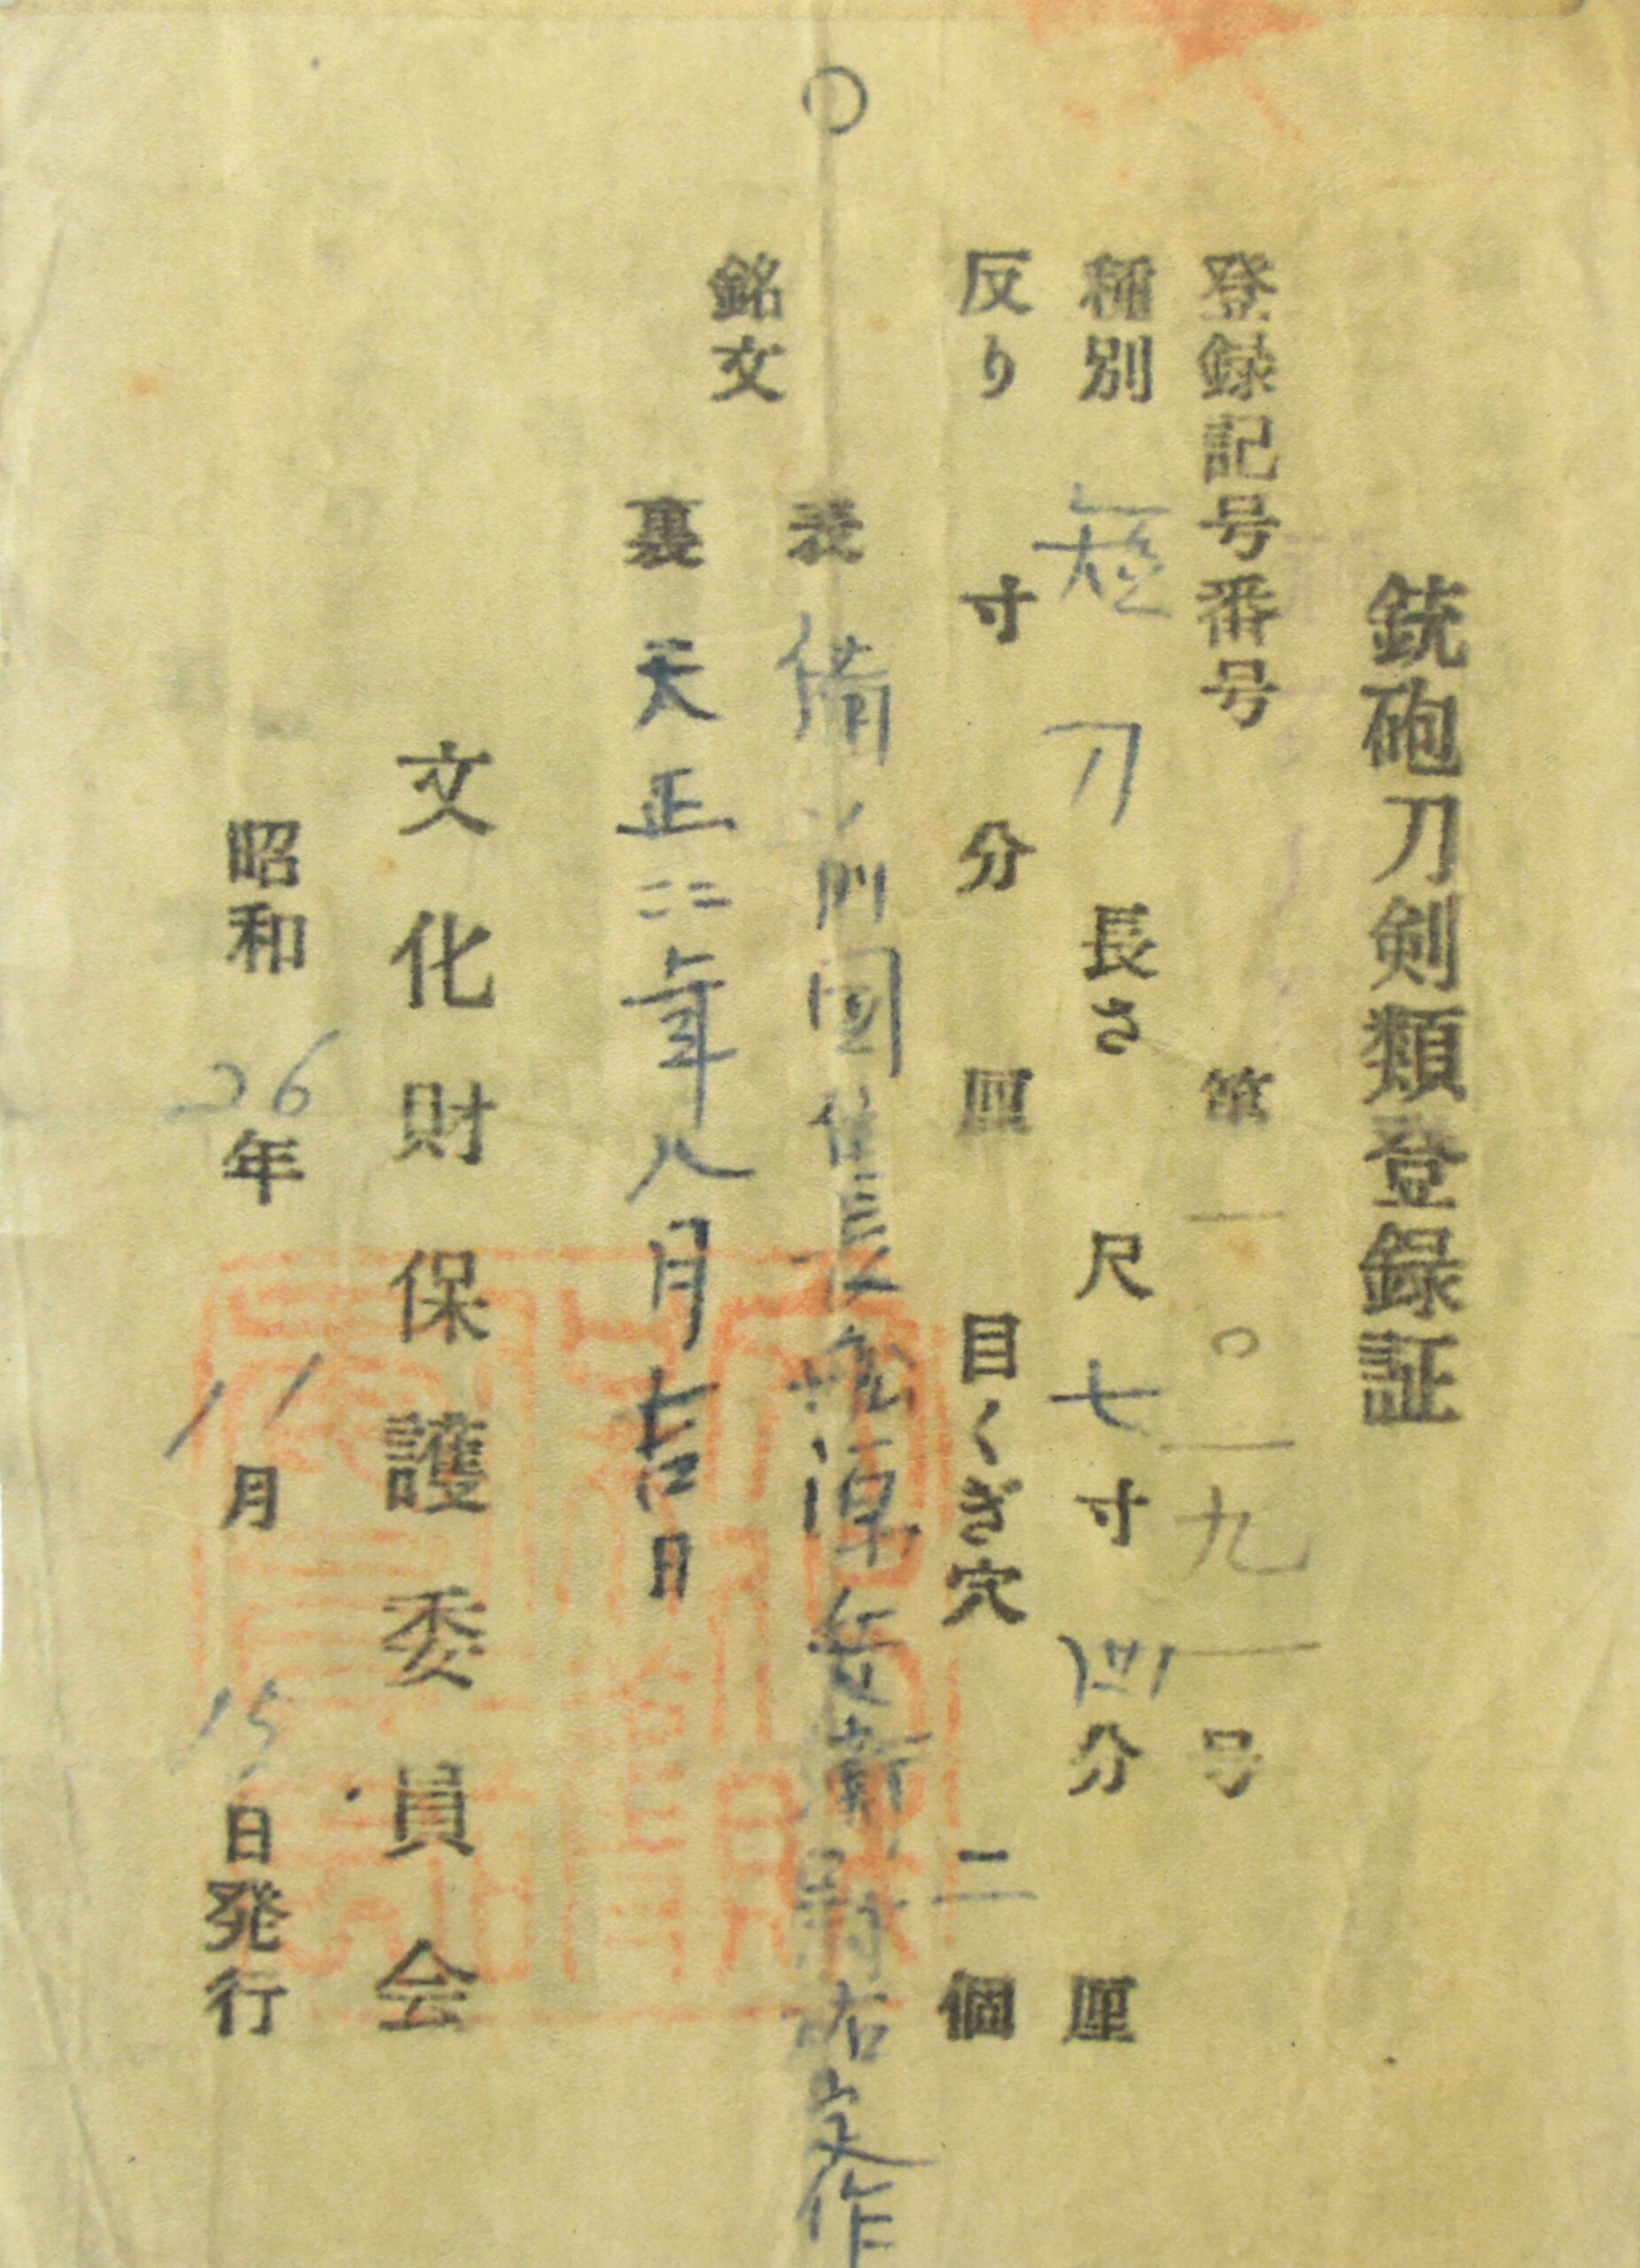 銃砲刀剣類登録証
登録記号番号 第一〇一九一号
種別 短刀 長さ 尺七寸四分 厘
反り 寸 分 厘 目くぎ穴 二個
銘文
表 備前国住長船源兵衛尉祐定作
裏 天正二年八月吉日
文化財保護委員会
昭和26年11月15日発行